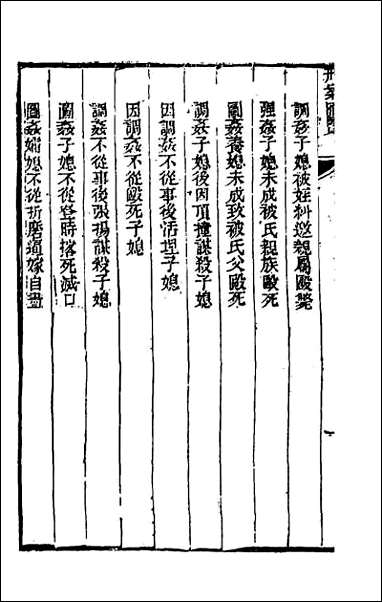 調姦子媳被姪糾邀親屬毆斃
强姦子媳未成被氏親族毆死
圖姦養媳未成致被氏父毆死
調姦子媳後因頂撞謀殺子媳
因調姦不從事後活埋子媳
因調姦不從毆死子媳
調姦不從事後張揚謀殺子媳
圖姦子媳不從登時搭死滅口
圖姦孀媳不從折磨逼嫁自盡